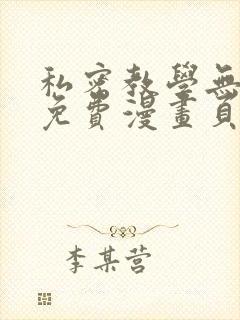 私密教學無
免費漫畫頁
李某营